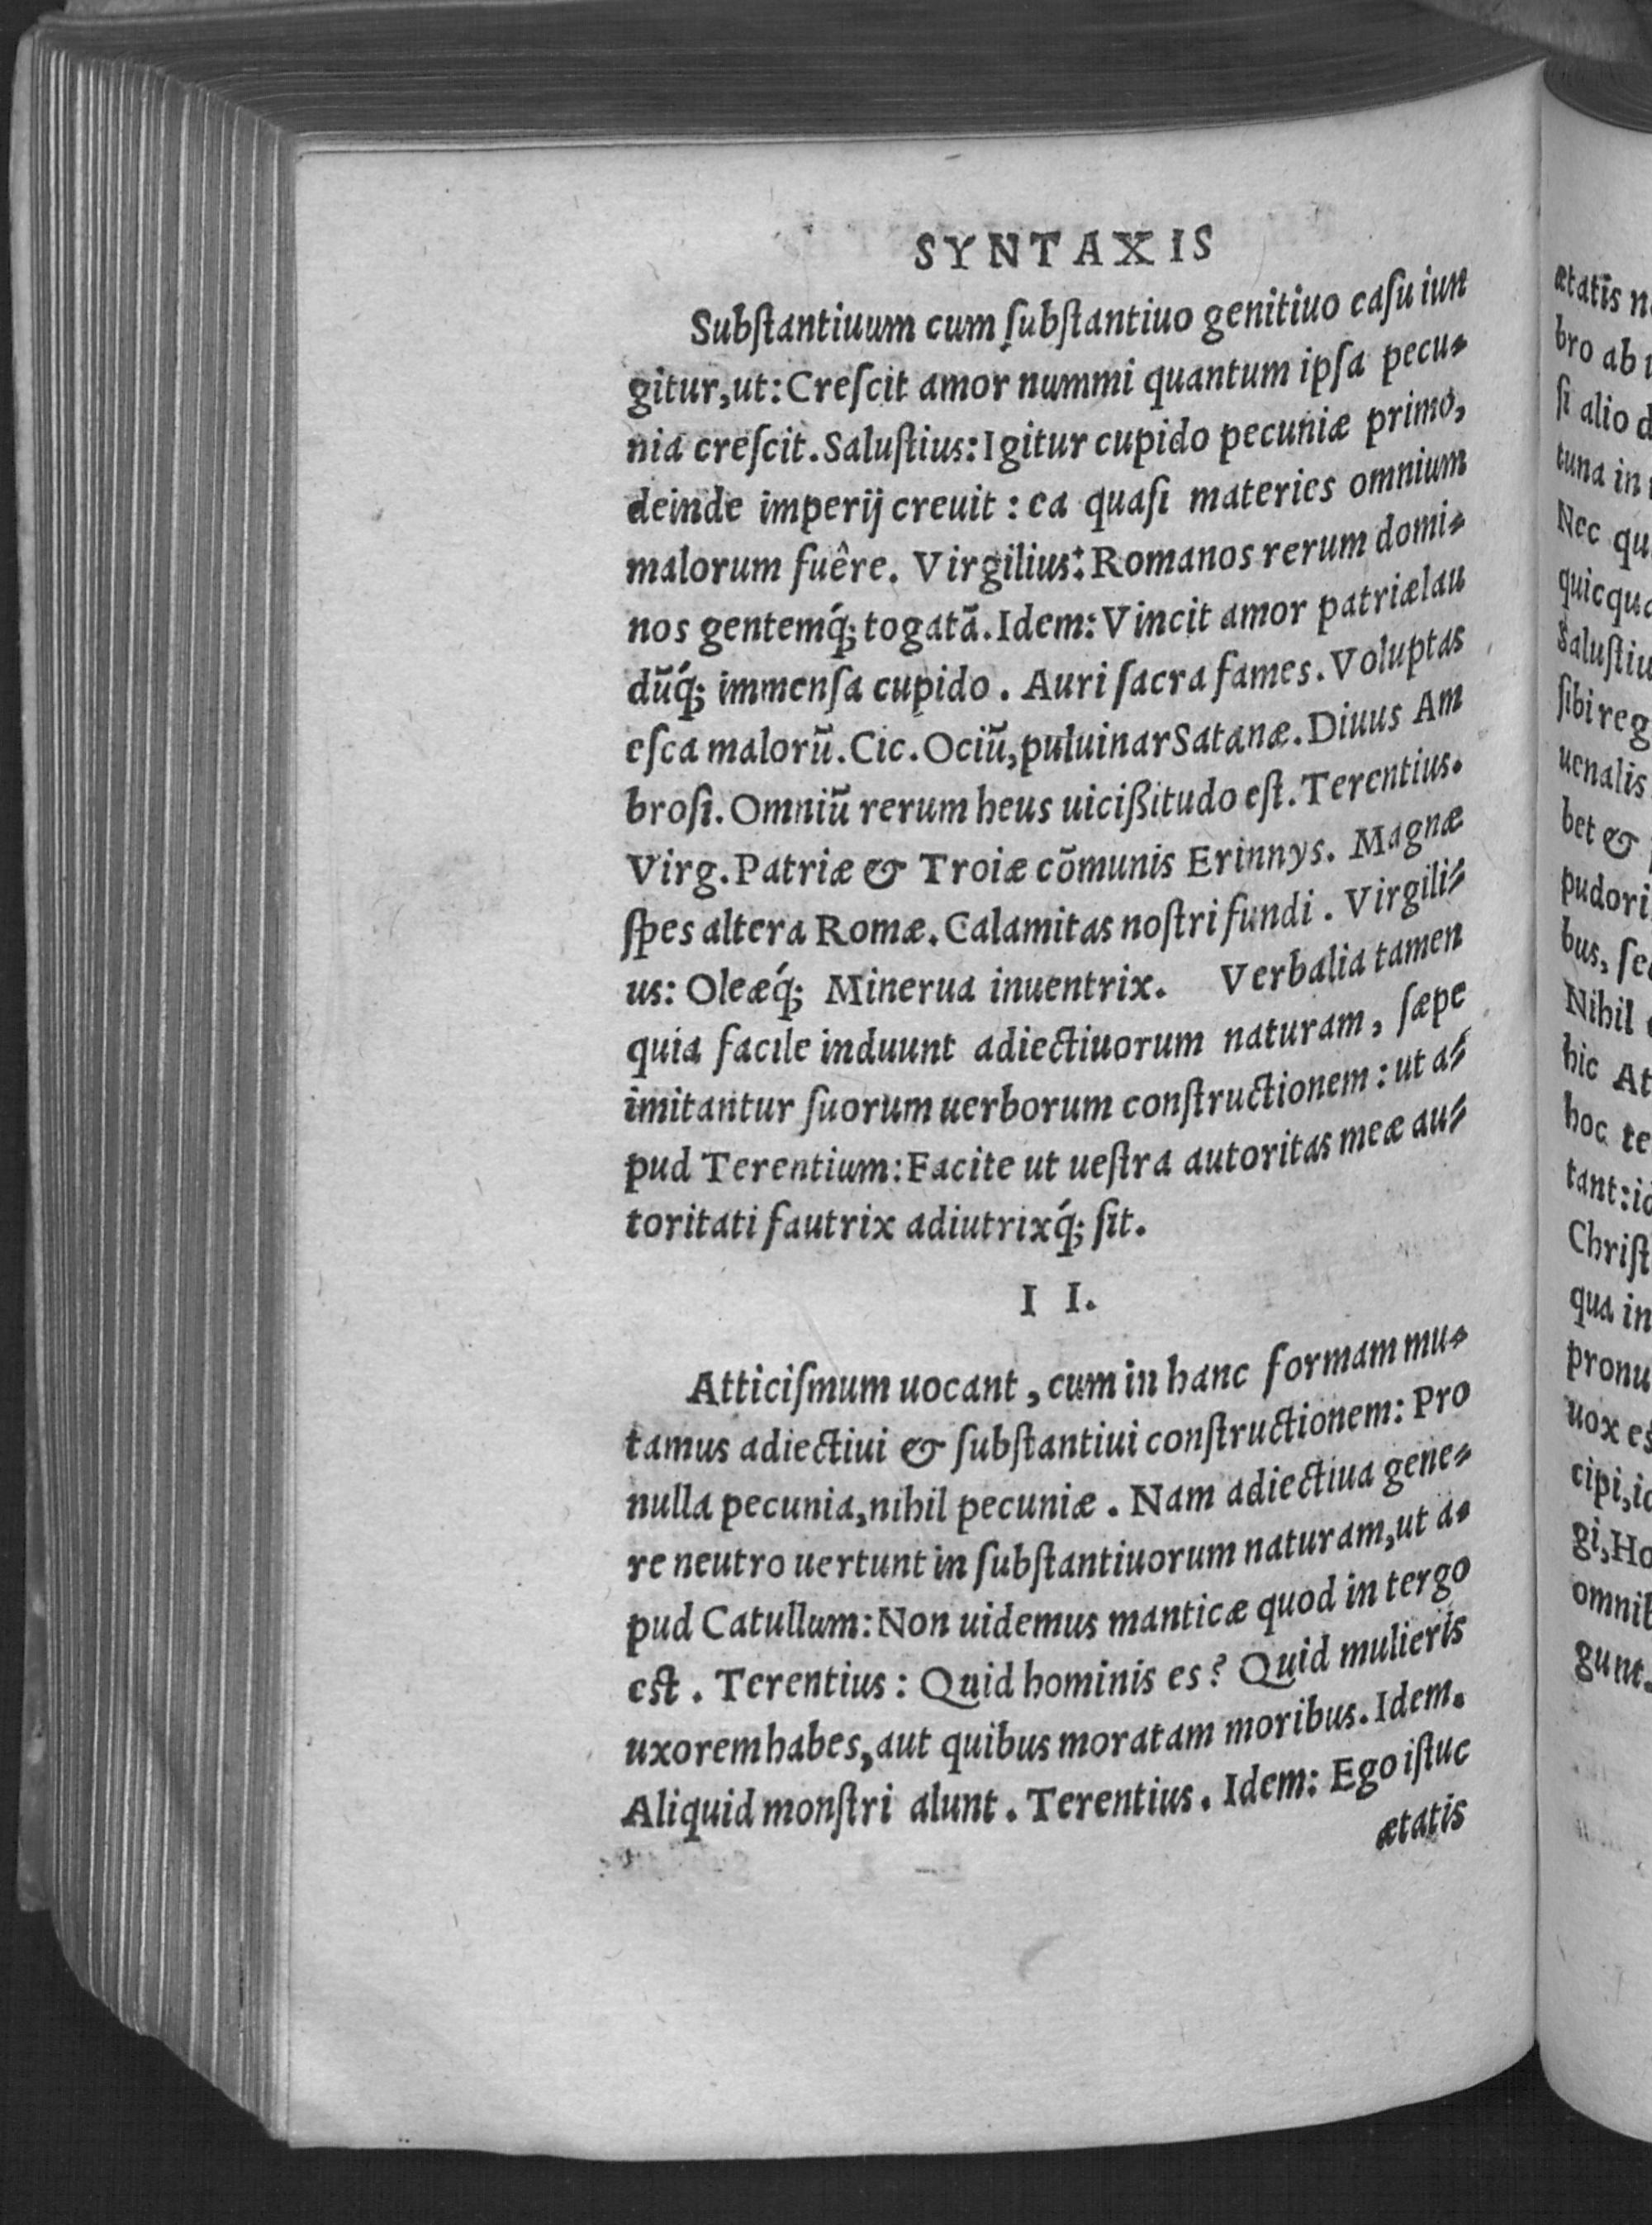 SYNTAXIS
Subſtantiuum cum ſubſtantiuo genitiuo caſu iun
gitur, ut: Creſcit amor nummi quantum ipſa pecu⸗
nia creſcit. Saluſtius: Igitur cupido pecuniæ primo,
deinde imperij creuit : ea quaſi materies omnium
malorum fuêre. Virgilius: Romanos rerum domi⸗
nos gentemq́; togatã. Idem: Vincit amor patriæ lau
dũq́; immenſa cupido. Auri ſacra fames. Voluptas
eſca malorũ. Cic. Ociũ, puluinar Satanæ. Diuus Am
broſi. Omniũ rerum heus uicißitudo eſt. Terentius.
Virg. Patriæ & Troiæ cõmunis Erinnys. Magnæ
ſpes altera Romæ. Calamitas noſtri fundi. Virgili⸗
us: Oleæq́; Minerua inuentrix. Verbalia tamen
quia facile induunt adiectiuorum naturam, ſæpe
imitantur ſuorum uerborum conſtructionem: ut a⸗
pud Terentium: Facite ut ueſtra autoritas meæ au⸗
toritati fautrix adiutrixq́; ſit.
I I.
Atticiſmum uocant, cum in hanc formam mu⸗
tamus adiectiui & ſubſtantiui conſtructionem: Pro
nulla pecunia, nihil pecuniæ. Nam adiectiua gene⸗
re neutro uertunt in ſubſtantiuorum naturam, ut a⸗
pud Catullum: Non uidemus manticæ quod in tergo
eſt. Terentius: Quid hominis es? Quid mulieris
uxorem habes, aut quibus moratam moribus. Idem.
Aliquid monſtri alunt. Terentius. Idem: Ego iſtuc
ætatis
ætatis
bro ab
ſi alio
tuna in
Nec
Saluſtiu
ſibi reg
uenalis
bet &
pudori
bus, ſe
Nihil
hic At
hoc te
tant: id
Chriſt
qua in
pronu
uox eſ
cipi, id
gi, Ho
omnib
gunt.